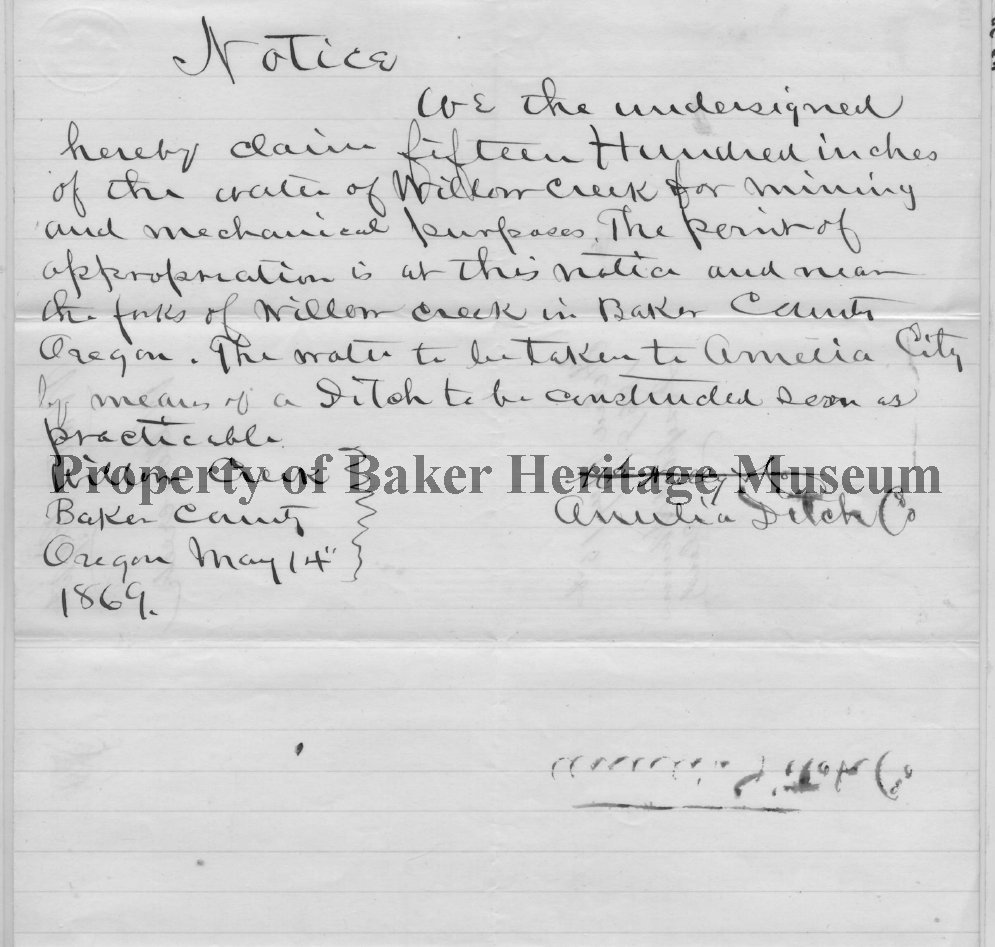 Notice
We the undersigned
hereby claim fifteen Hundred inches
of the water of Willow Creek for mining
and mechanical purposes. The point of
appropriation is at this notice and near
the forks of Willow creek in Baker County
Oregon. The water to be taken to Amelia City
by means of a Ditch to be constructed soon as
practicable
Willow Creek
Baker County
Oregon May 14"
1869.
Amelia Ditch Co
Property of Baker Heritage Museum
Ditch Co